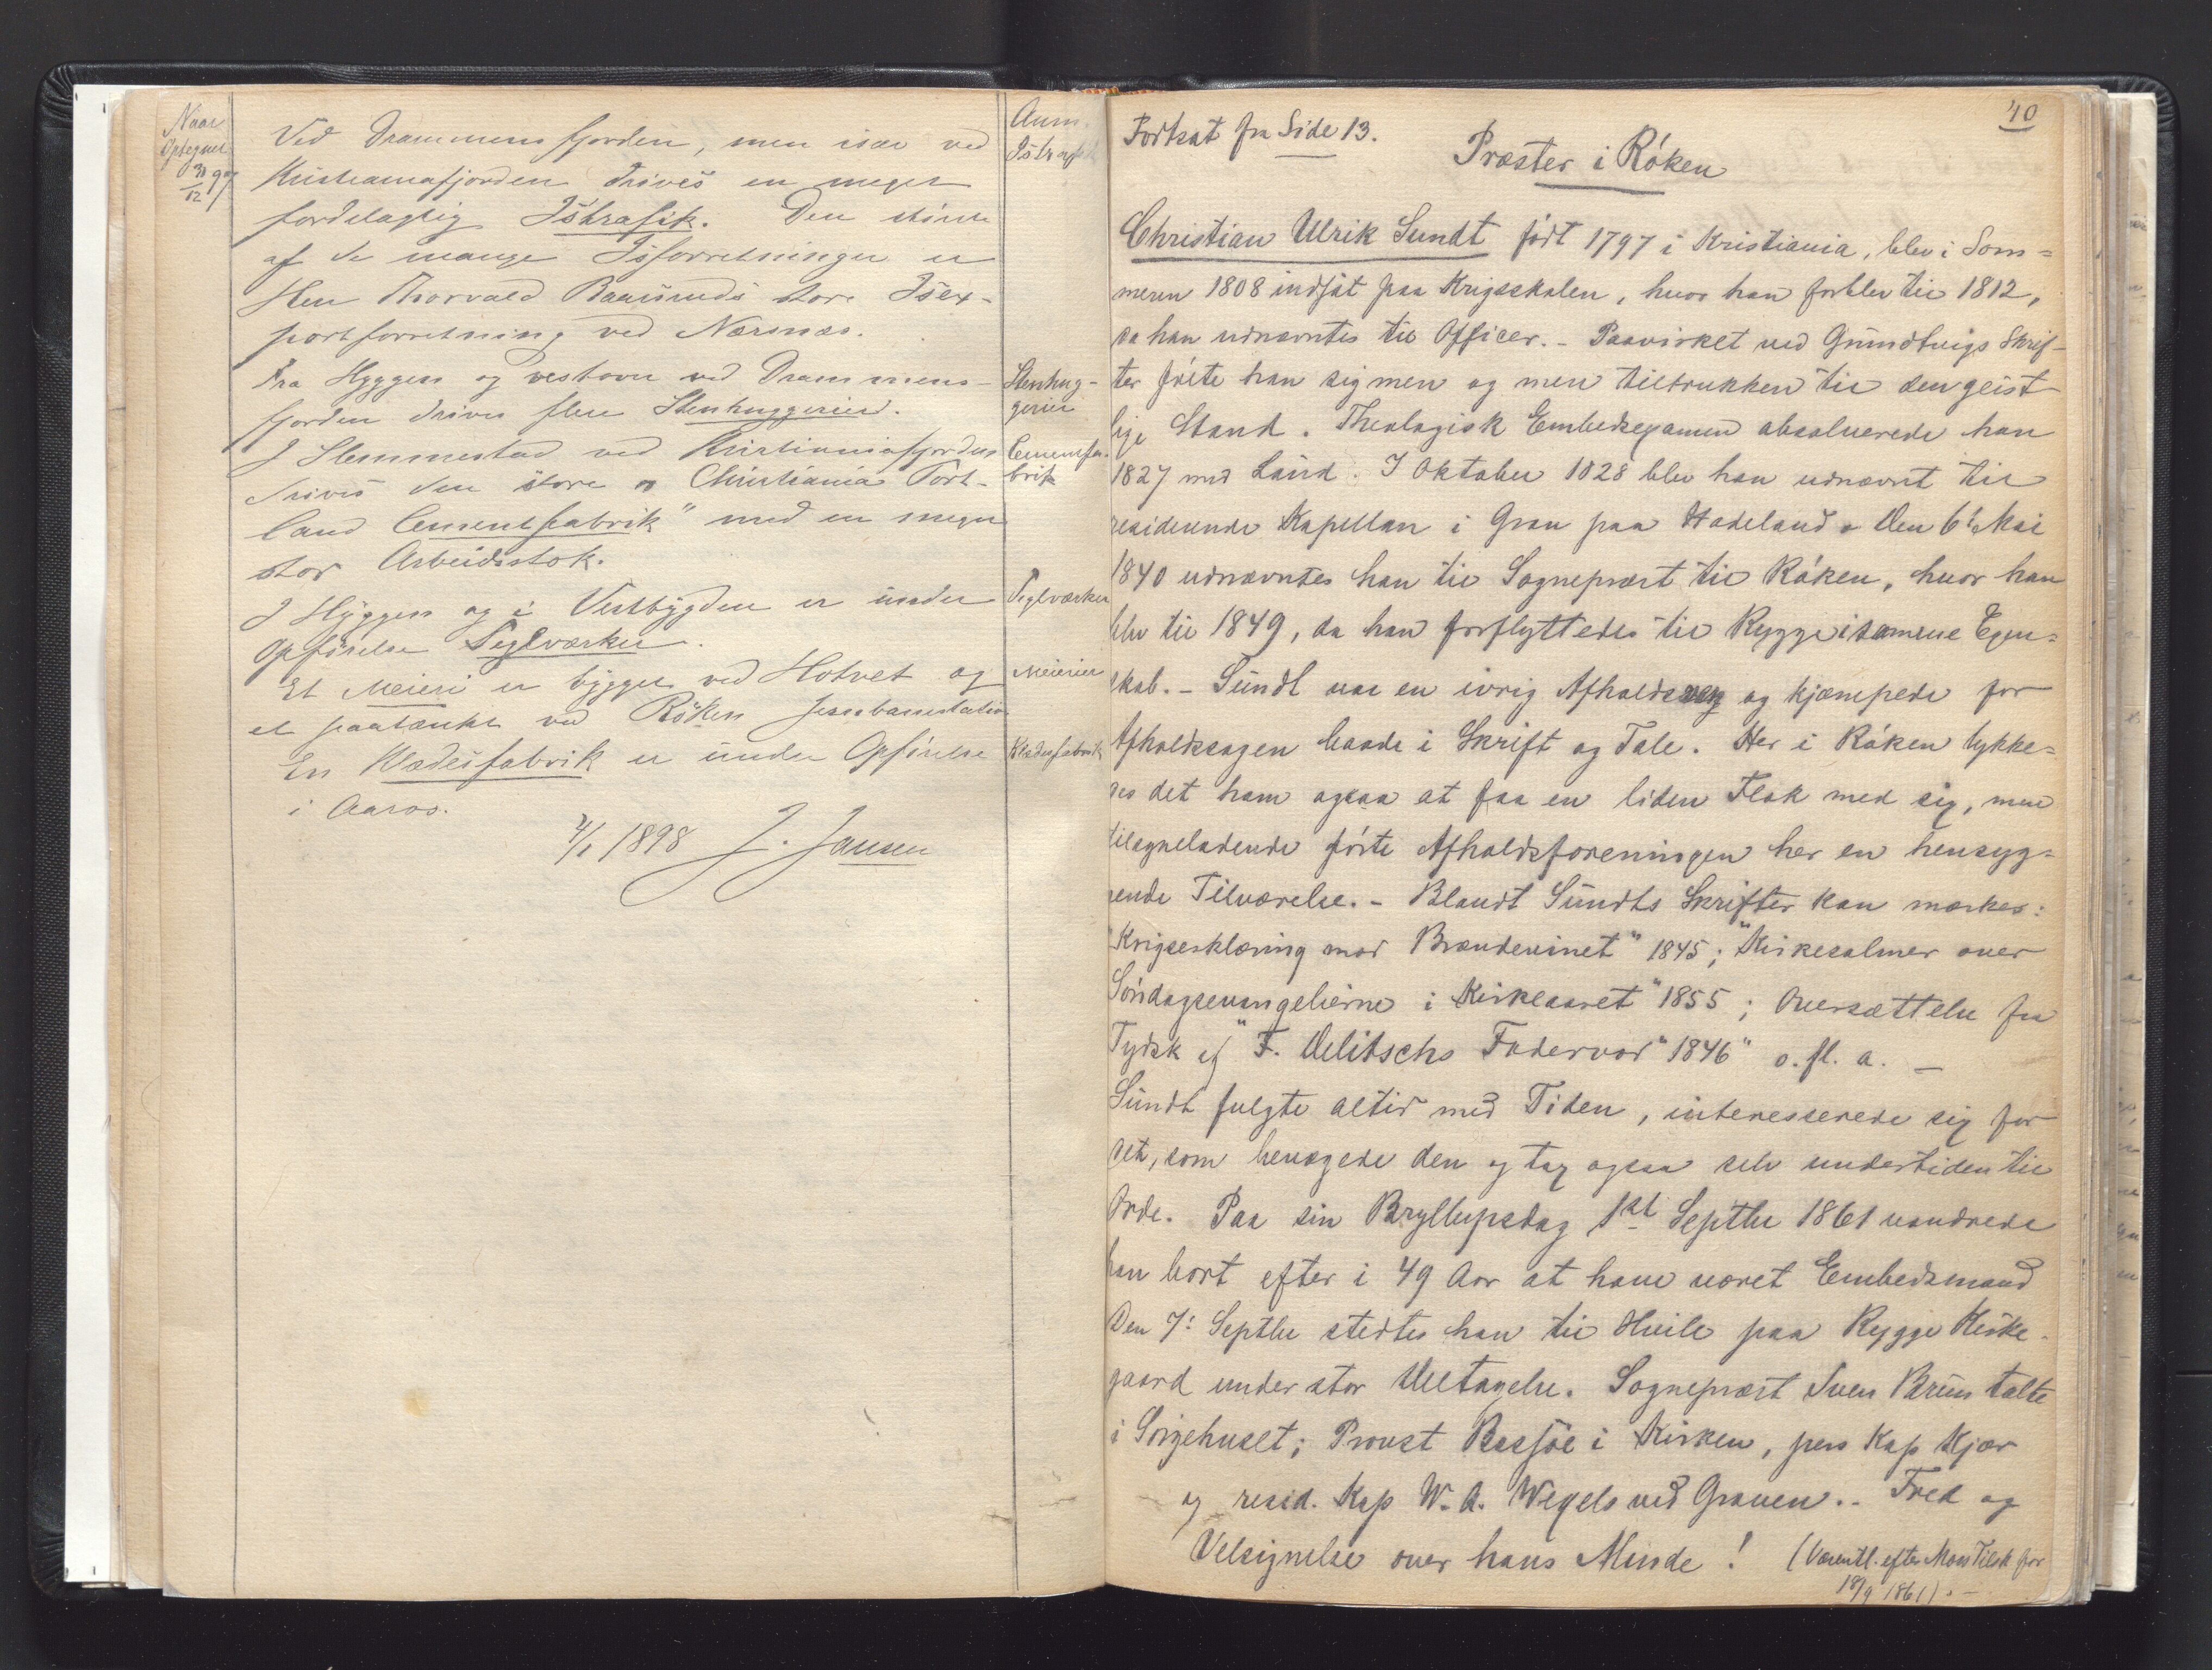 Naar
Optegnet
31/12 97
Ved Drammensfjorden, men især ved
Kristianiafjorden drives en meget
fordelagtig Istrafik. Den største
af de mange Isforretninger er
Herr Thorvald Baarsruds store Isex-
portforretning ved Nærsnæs.
Fra Hyggen og vestover ved Drammens-
fjorden drives flere Stenhuggerier.
I Slemmestad ved Kristianiafjorden
drives den store "Christiania Port-
land Cementfabrik" med en meget
stor Arbeidsstok.
I Hyggen og i Vestbygden er under
Opførelse Teglværker.
Et Meieri er bygget ved Hotvet og
et paatænkt ved Røken Jernbanestation
En Klædesfabrik er under Opførelse
i Aaros.
4/1 1898 J. Jansen
Anm.
Istrafik
Stenhug-
gerier
Cementfa-
brik
Teglværker
Meierier
Klædesfabrik
40
Fortsat fra Side 13.
Præster i Røken
Christian Ulrik Sundt født 1797 i Kristiania, blev i Som=
meren 1808 indsat paa Krigsskolen, hvor han forblev til 1812,
da han udnævntes til Officer. - Paavirket ved Grundtvigs Skrif-
ter følte han sig mer og mer tiltrukken til den geist
lige Stand. Theologisk Embedsexamen absolverede han
1827 med Laud. I Oktober 1828 blev han udnævnt til
residerende Kapellan i Gran paa Hadeland. Den 6te Mai
1840 udnævntes han til Sogneprest til Røken, hvor han
blev til 1849, da han forflyttedes til Rygge i samme Egen=
skab. - Sundt var en ivrig Afholdsven og kjæmpede for
Afholdssagen baade i Skrift og Tale. Her i Røken lykke=
des det ham ogsaa at faa en liden Flok med sig, men
tilsyneladende førte Afholdsforeningen her en hensyg=
nende Tilværelse. - Blandt Sundts Skrifter kan mærkes:
"Krigserklæring mod Brændevinet" 1845; "Kirkesalmer over
Søndagsevangelierne i Kirkeaaret" 1855; Oversættelse fra
Tydsk af "F. Delitschs Fadervor" 1846" o. fl. a. -
Sundt fulgte altid med Tiden, interesserede sig for
det, som bevægede den og tog ogsaa selv undertiden til
Orde. Paa sin Bryllupsdag 1st Septbr 1861 vandrede
han bort efter i 49 Aar at have været Embedsmand
Den 7: Septbr stedtes han til Hvile paa Rygge Kirke-
gaard under stor Deltagelse. Sogneprest Sven Brun talte
i Sørgehuset; Provst Bassøe i Kirken, pers Kap Kjær
og resid. Kap W. A. Wexels ved Graven. - Fred og
Velsignelse over hans Minde! (Væsentl. efter Moss Tilsk for
18/9 1861). -